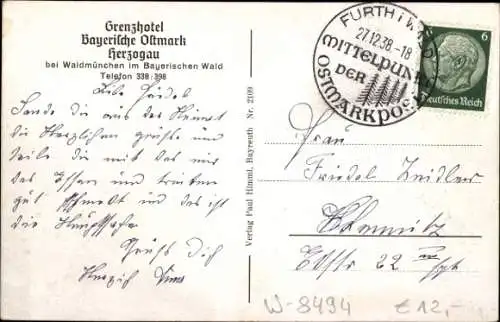 Grenzhotel
Bayerische Ostmark
Herzogau
bei Waldmünchen im Bayerischen Wald
Telefon 338:398
Sende dir aus der
die herzlichen Grüße und
teile dir mit das mir
das Essen und trinken
gut schmeckt und das ist
die Hauptsache
Gruß Dich
Verlag Paul Himml, Bayreuth Nr. 2109
FURTH i. WALD
27.12.38.-18
MITTELPUNKT
DER
OSTMARKPOST
6
Deutsches Reich
Frau
Friedel Zeidler
Chemnitz
22
W-8494 €12,-